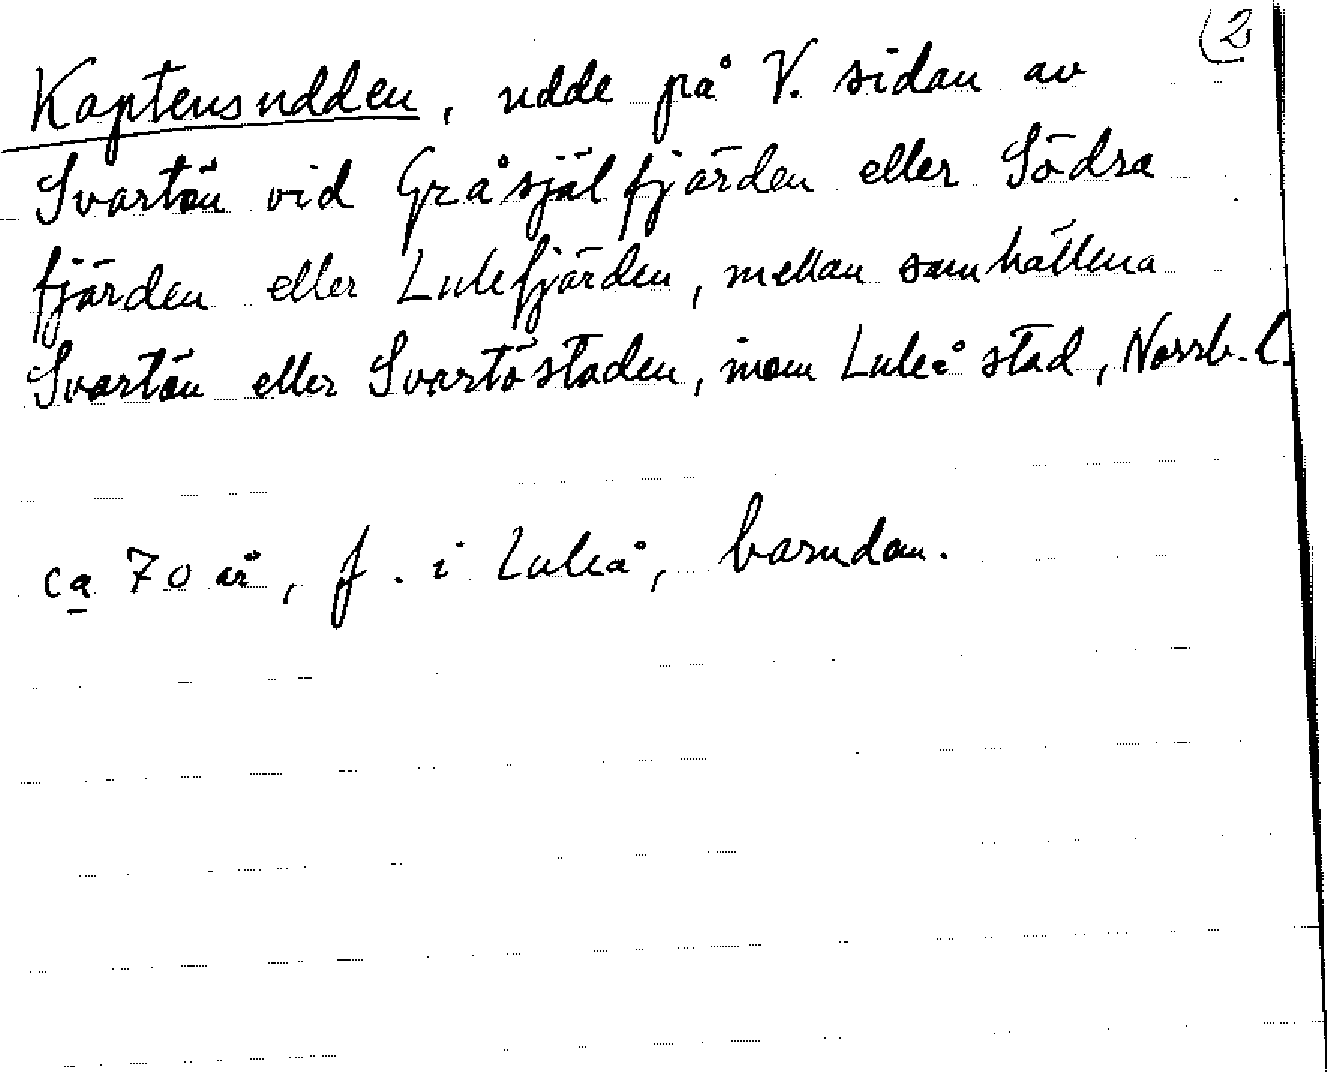 (2
Kaptensudden, udde på V. sidan av
Svartön vid Gråsjälfjärden eller Södra
fjärden eller Lulefjärden, mellan samhällena
Svartön eller Svartöstaden, inom Luleå stad, Norrb. l.
ca 70 år, f. i Luleå, barndom.